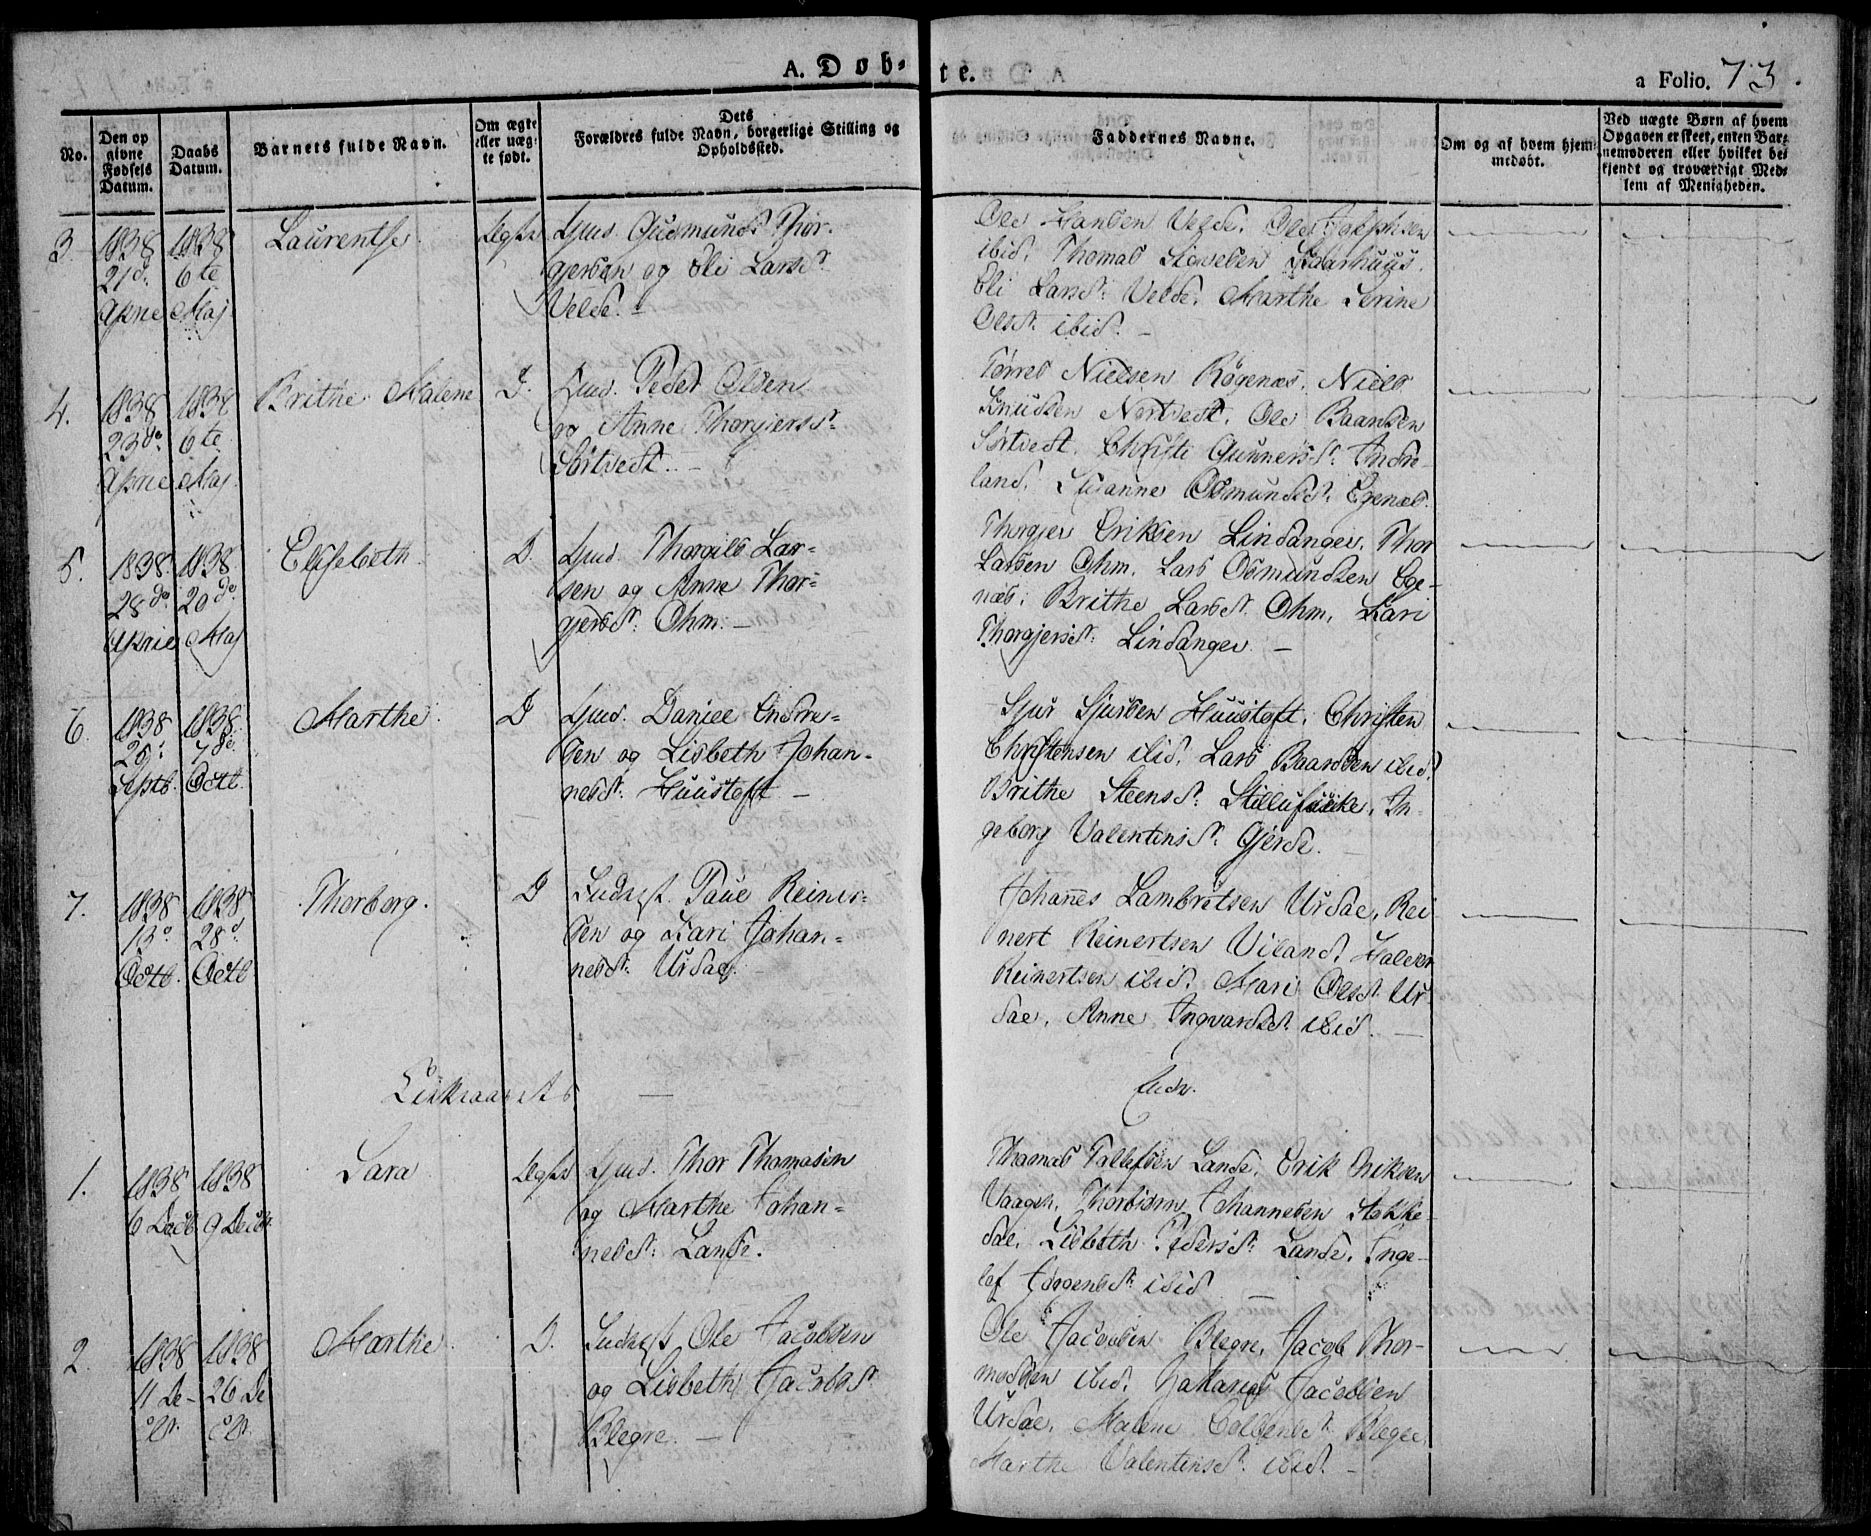 A. Døb-
te.
a Folio. 73.
No.
Den op
givne
Fødsels
Datum.
Daabs
Datum.
Barnets fulde Navn.
Om ægte
eller uæg-
te født.
Dets
Forældres fulde Navn, borgerlige Stilling og
Opholdssted.
Faddernes Navne.
Om og af hvem hjem-
medøbt.
Ved uægte Børn af hvem
Opgaven er skeet, enten Bar-
nemoderen eller hvilket be-
kjendt og troværdigt Med-
lem af Menigheden.
3.
1838
21d.
April
1838
6te
Maj
Laurentse
Ægte
Gjus. Gudmund Thor-
gjersen og Eli Larsd.
Velde. -
Ole Hansen Velde. Ole Josephsen
ibid. Thomas Skaarhuus.
Eli Larsd: Velde. Marthe Serine
Olsd. ibid. -
4.
1838
23do
April
1838
6te
Maj
Brithe Malene
D.
Gmd. Peder Olsen
og Anne Thorgjersd.
Sørtvedt. -
Tørres Nielsen Røgenæs. Niels
Knudsen Nortvedt. Ole Baardsen
Sørtvedt. Christi Gunnersd. Indre-
land. Susanne Osmundsd. Egenæs.
5.
1838.
28do
April
1838
20do
Maj
Elisebeth
D.
Gmd. Thorgils Lar-
sen og Anne Thor-
gjersd: Ohm. -
Thorgjer Eriksen Lindanger. Thor
Larsen Ohm. Lars Osmundsen Ege-
næs. Brithe Larsd. Ohm. Kari
Thorgjersd: Lindanger. -
6.
1838
Septb.
1838
7de
Octb.
Marthe.
D
Gmd. Daniel Endre-
sen og Lisbeth Johan-
nesd: Huustoft -
Sjur Sjursen Huustoft. Christen
Christensen ibid. Lars Baardsen ibid.
Brithe Steensd: In-
geborg Valentinsd: Gjerde.
7.
1838
13d
Octb.
1838
28d.
Octb
Thorborg.
D
Indrest. Poul Reiner-
sen og Kari Johan-
nesd: Urdal.
Johannes Lambretsen Urdal, Rei-
nert Reinertsen Viland. Halvor
Reinertsen ibid. Mari Olsd. Ur-
dal. Anne Ingvardsd. ibid. -
1.
1838
6 Decb.
1838
9 Decbr.
Sara
Ægte
Gmd. Thor Thomasen
og Marthe Johan-
nesd: Lande.
Thomas Tollefsen Lande. Erik Eriksen
Vaagen. Thorbiørn Johannesen Stokke-
dal. Lisbeth Pedersd: Lande. Inge-
lef Jørgensd: ibid -
2
1838
11 De-
cbr.
1838
26 De
cbr.
Marthe.
D.
Indrest. Ole Jacobsen
og Lisbeth Jacobsd
Blegre. -
Ole Jacobsen Blegre, Jacob Thor-
modsen ibid. Zakarias Jacobsen
Urdal. Malene Colbensd. Blegre
Marthe Valentinsd: ibid. -